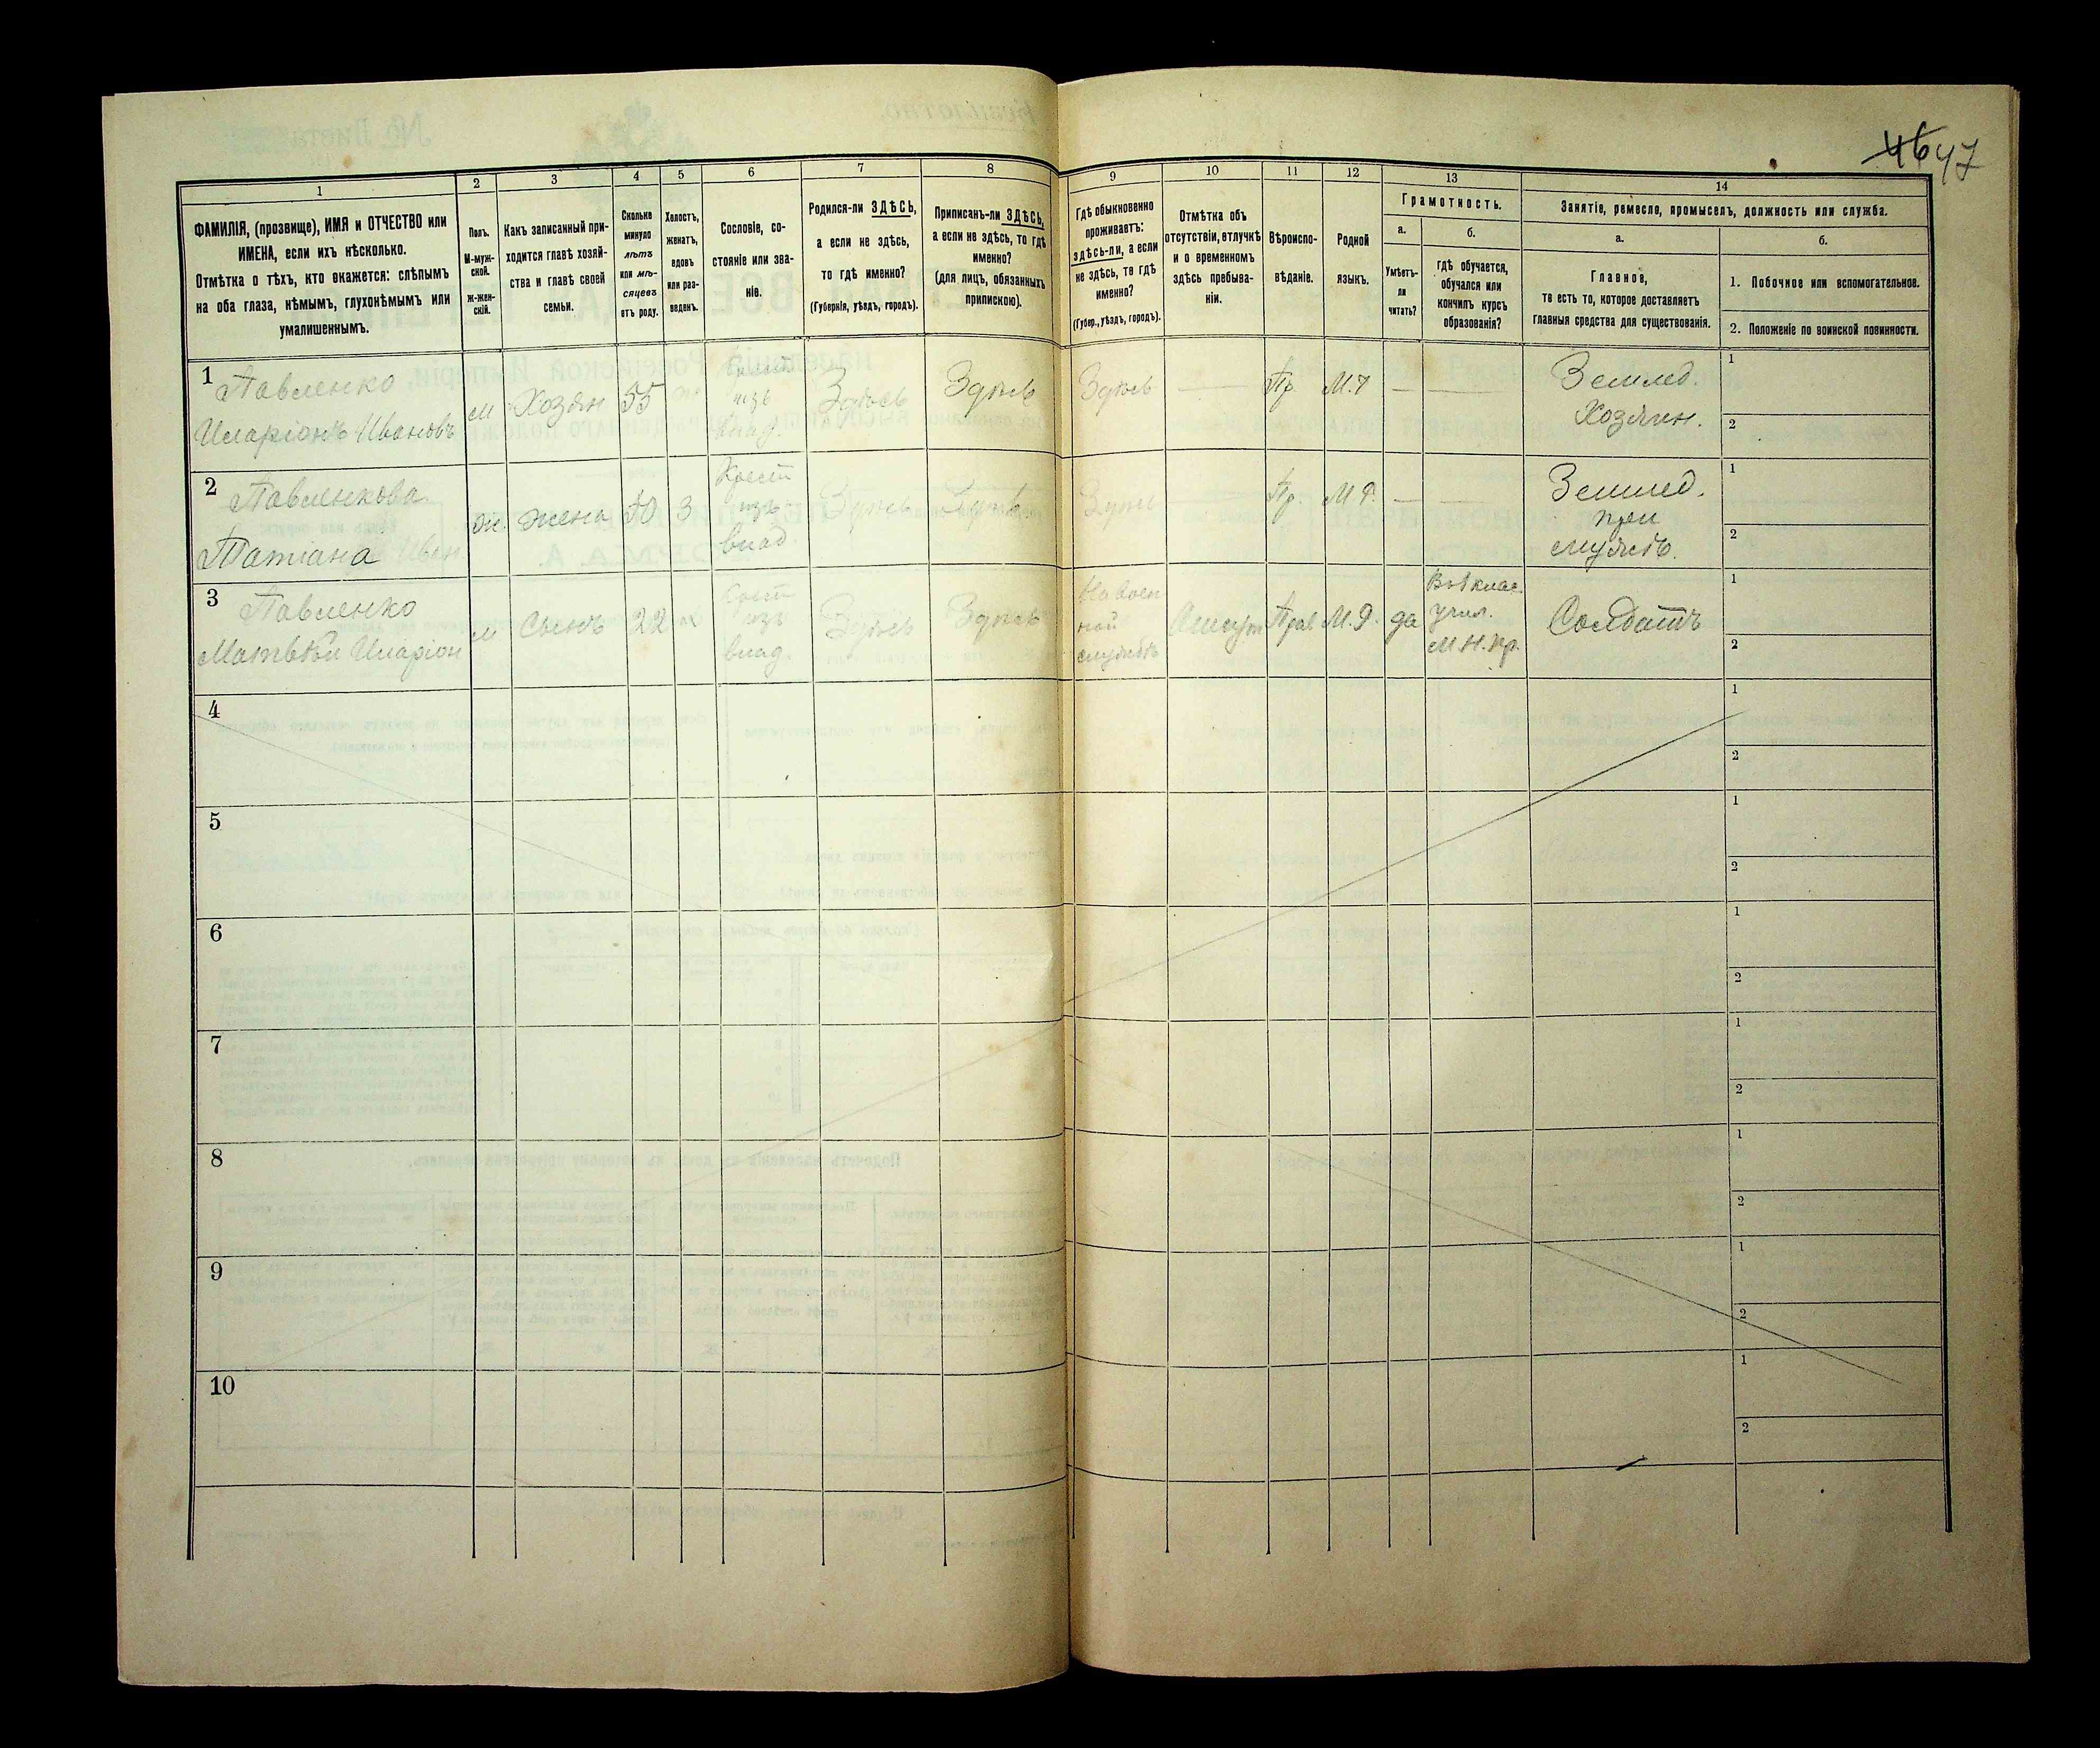 46 47
1
2
3
4
5
6
7
8
9
10
11
12
13
14
ФАМИЛІЯ, (прозвище), ИМЯ и ОТЧЕСТВО или
ИМЕНА, если ихъ нѣсколько.
Отмѣтка о тѣхъ, кто окажется: слѣпымъ
на оба глаза, нѣмымъ, глухонѣмымъ или
умалишеннымъ.
Полъ.
М-муж-
ской.
ж-жен-
скій.
Какъ записанный при-
ходится главѣ хозяй-
ства и главѣ своей
семьи.
Сколько
минуло
лѣтъ
или мѣ-
сяцевъ
отъ роду.
Холостъ,
женатъ,
вдовъ
или раз-
веденъ.
Сословіе, со-
стояніе или зва-
ніе.
Родился-ли ЗДѢСЬ,
а если не здѣсь,
то гдѣ именно?
(Губернія, уѣздъ, городъ).
Приписанъ-ли ЗДѢСЬ,
а если не здѣсь, то гдѣ
именно?
(для лицъ, обязанныхъ
припискою).
Гдѣ обыкновенно
проживаетъ:
здѣсь-ли, а если
не здѣсь, то гдѣ
именно?
(Губер., уѣздъ, городъ).
Отмѣтка объ
отсутствіи, отлучкѣ
и о временномъ
здѣсь пребыва-
ніи.
Вѣроиспо-
вѣданіе.
Родной
языкъ.
Грамотность.
а.
Умѣетъ-
ли
читать?
б.
гдѣ обучается,
обучался или
кончилъ курсъ
образованія?
Занятіе, ремесло, промыселъ, должность или служба.
а.
Главное,
то есть то, которое доставляетъ
главныя средства для существованія.
б.
1. Побочное или вспомогательное.
2. Положеніе по воинской повинности.
1 Павленко
Иларіонъ Ивановъ
м
Хозяин
55
Крест
изъ
влад.
Здѣсь
Здѣсь
Здѣсь
—
Пр.
М.Р
—
—
Землед.
Хозяин.
1
2
2 Павленкова
Татіана Иван
ж.
жена
50
З
Крест
изъ
влад.
Здѣсь
Здѣсь
Здѣсь
—
Пр.
М.Р.
—
—
Землед.
при
мужѣ.
1
2
3 Павленко
Матвѣй Иларіон
м
Сынъ
22
Крест
изъ
влад.
Здѣсь
Здѣсь
На воен
ной
службѣ
Прав
М.Р.
да
учил.
М.Н.Пр.
Солдатъ
1
2
4
1
2
5
1
2
6
1
2
7
1
2
8
1
2
9
1
2
10
1
2